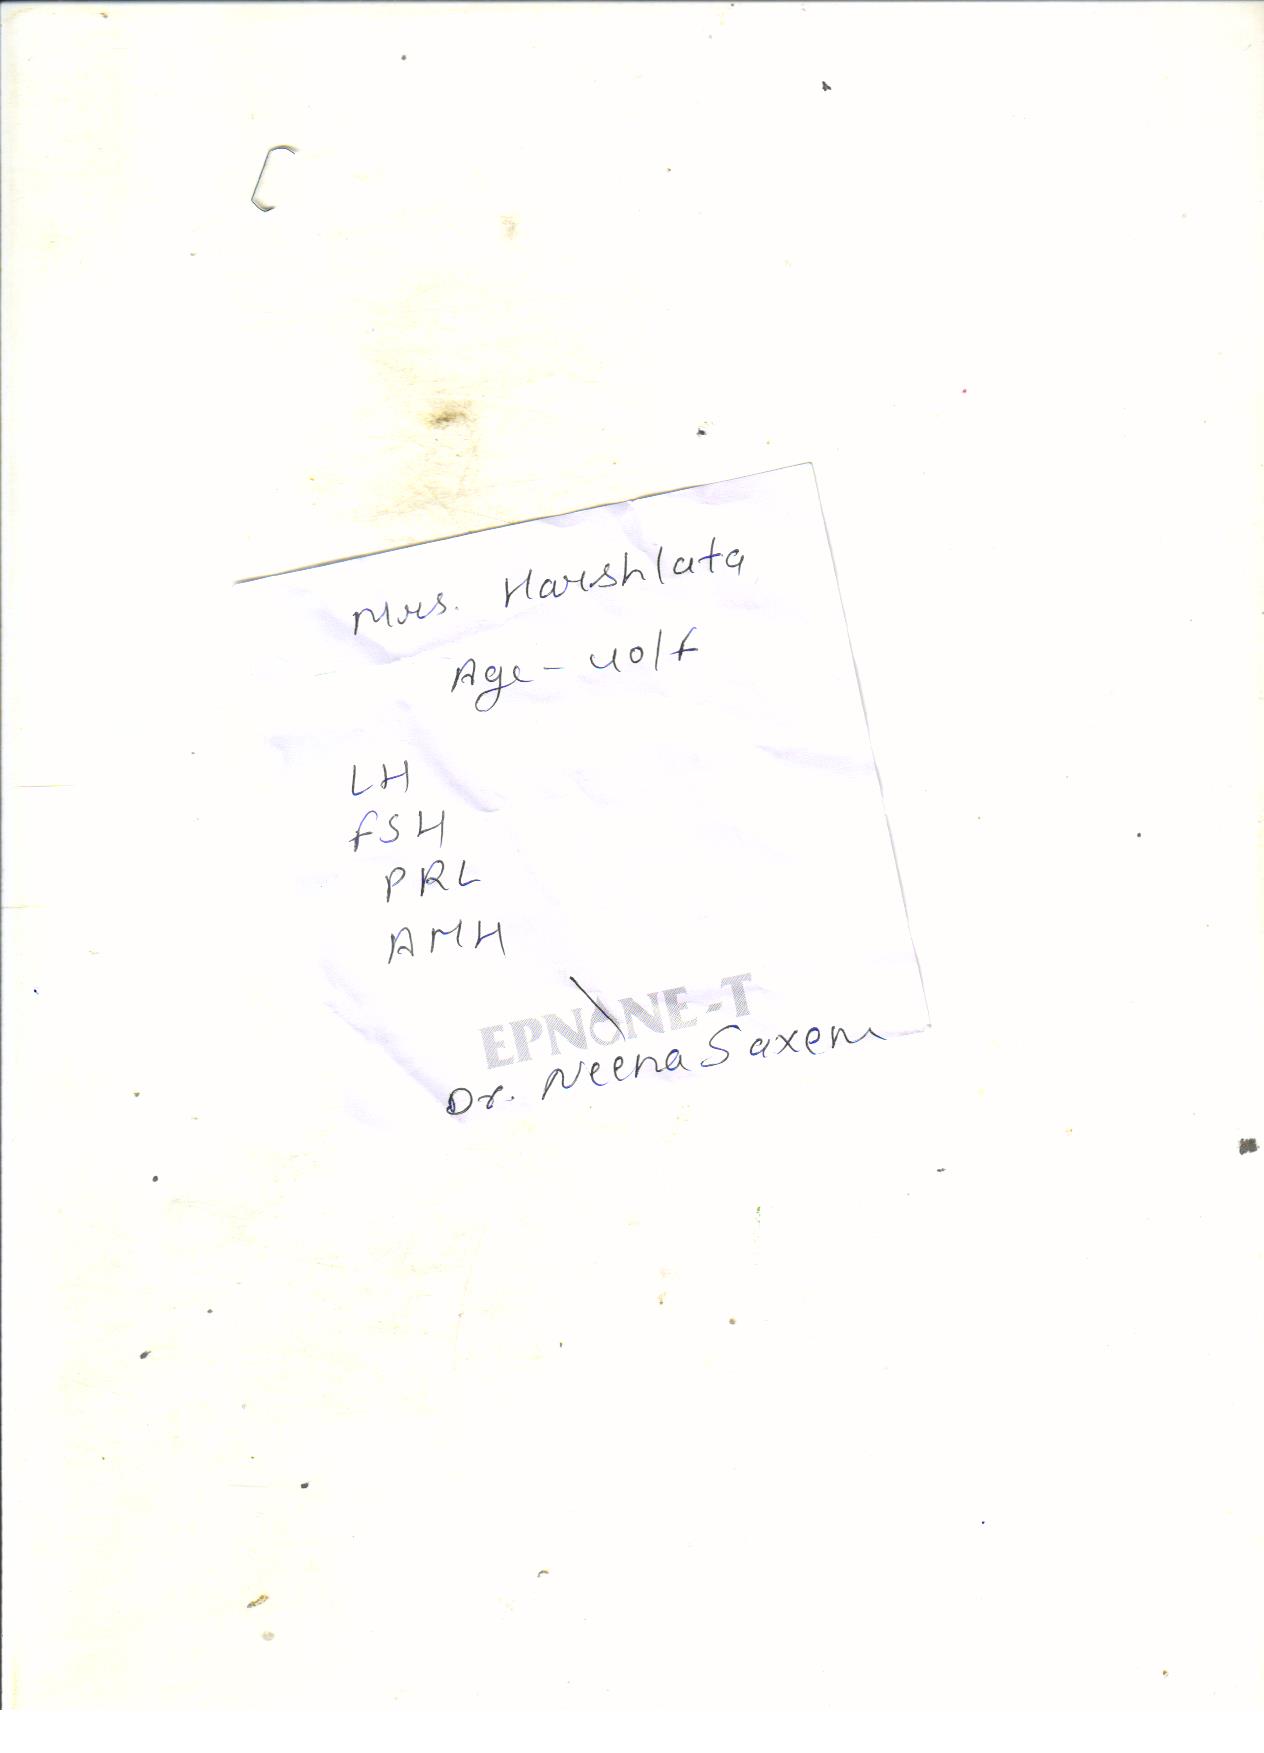 Mrs. Harshlata
Age - 40/F
LH
FSH
PRL
AMH
EPNONE-T
Dr. Neena Saxena